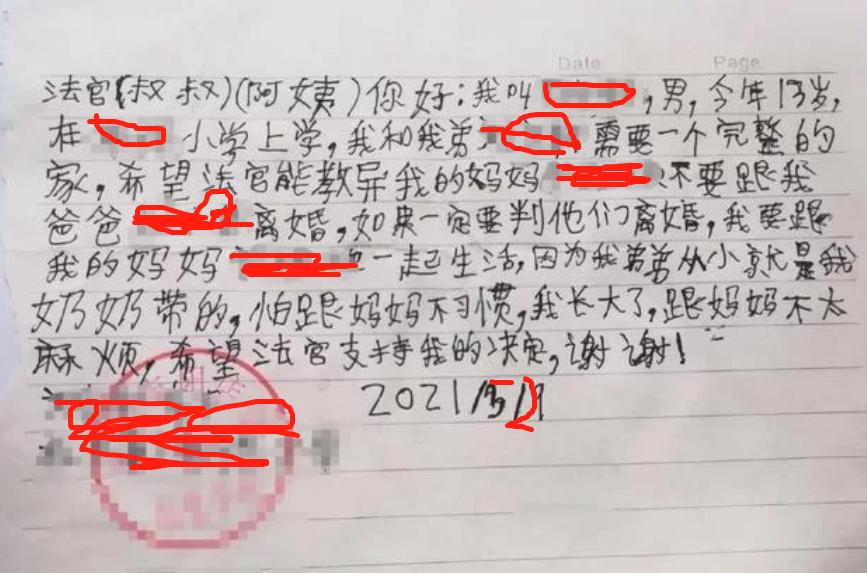 Date Page
法官(叔叔)(阿姨)你好:我叫,男,今年13岁,
在小学上学,我和我弟需要一个完整的
家,希望法官能教导我的妈妈不要跟我
爸爸离婚,如果一定要判他们离婚,我要跟
我的妈妈一起生活,因为我弟弟从小就是我
奶奶带的,怕跟妈妈不习惯,我长大了,跟妈妈不太
麻烦,希望法官支持我的决定,谢谢!
2021